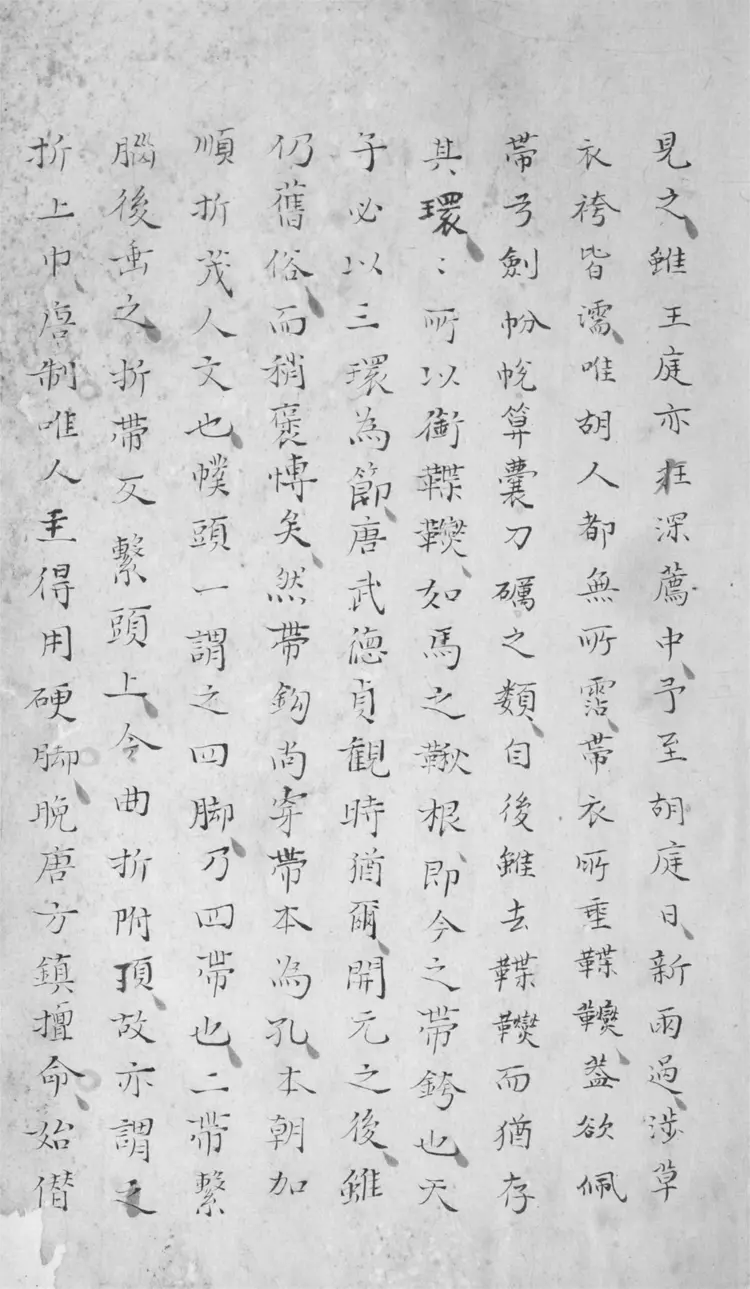 見之雖王庭亦在深薦中予至胡庭日新雨過涉草
衣袴皆濡唯胡人都無所霑帶衣所垂鞢韄蓋欲佩
帶弓劍帉帨算囊刀礪之類自後雖去鞢韄而猶存
其環〻所以銜鞢韄如馬之鞦根即今之帶銙也天
子必以三環為節唐武德貞觀時猶爾開元之後雖
仍舊俗而稍褒博矣然帶鉤尚穿帶本為孔本朝加
順折茂人文也幞頭一謂之四脚乃四帶也二帶繫
腦後垂之折帶反繫頭上令曲折附頂故亦謂之
折上巾唐制唯人主得用硬脚晚唐方鎮擅命始僣